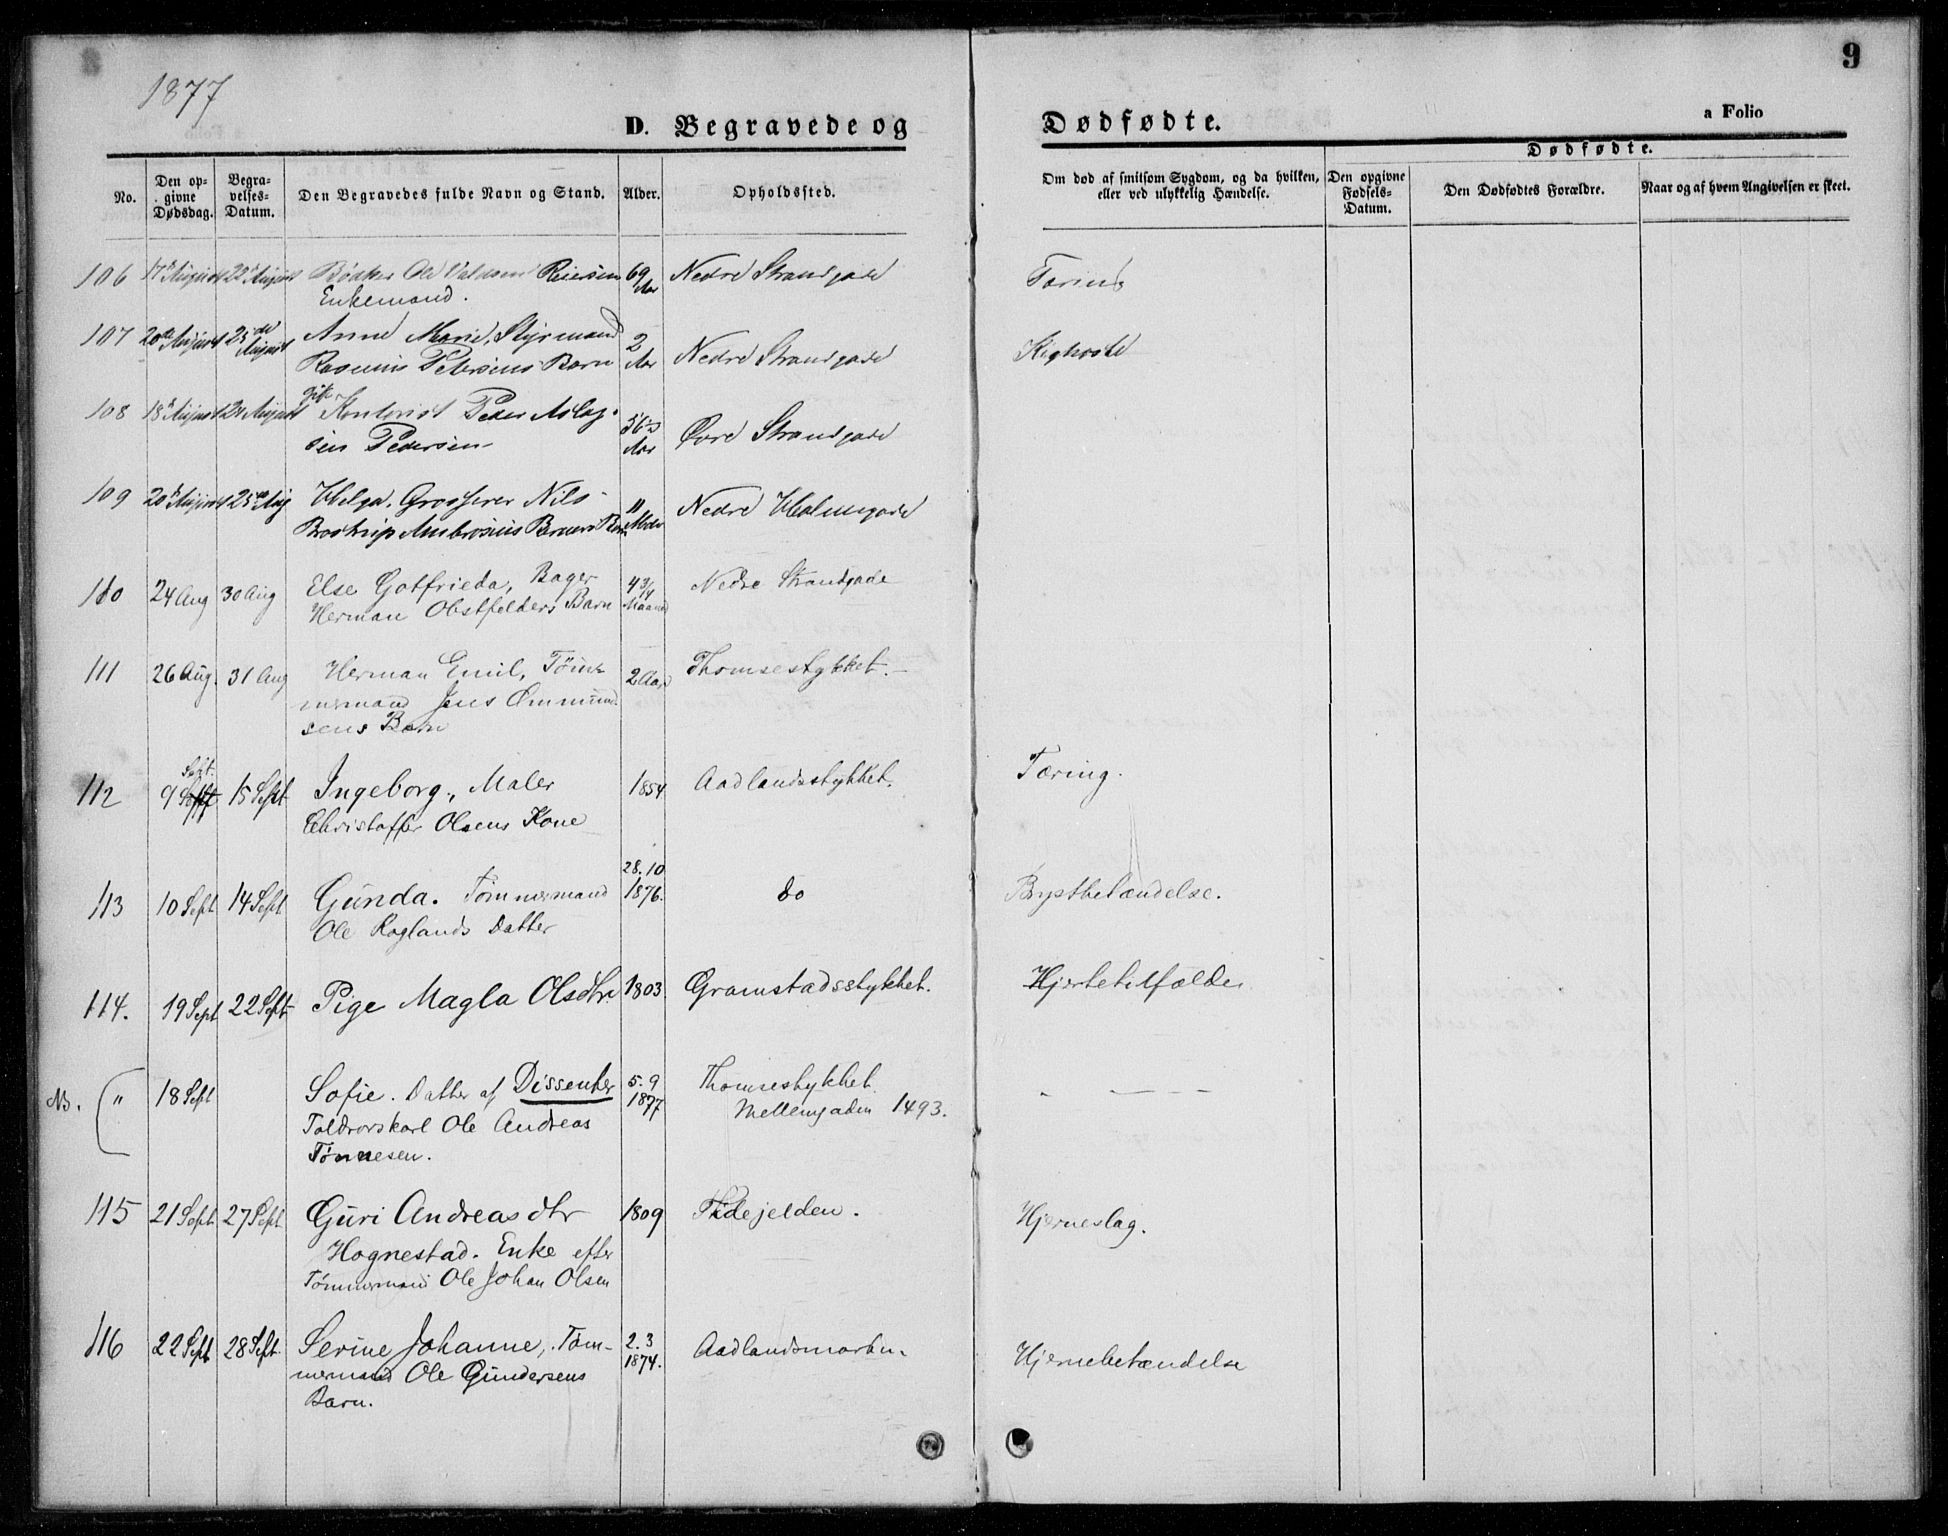 1877
9
D. Begravede og
Dødfødte.
a Folio
No.
Den op-
givne
Dødsdag.
Begra-
velses-
Datum.
Den Begravedes fulde Navn og Stand.
Alder.
Opholdssted.
Om død af smitsom Sygdom, og da hvilken,
eller ved ulykkelig Hændelse.
Dødfødte.
Den opgivne
Fødsels-
Datum.
Den Dødfødtes Forældre.
Naar og af hvem Angivelsen er skeet.
106 17de August 22de August Bødker Ole Reiersen 69 Nedre Strandgade Tæring
Enkemand. Aar
107 20de August 25de August Anne Marie, Styrmand 2 Nedre Strandgade Kighoste
Rasmus Petersens Barn Aar
108 18de August 24 August gift Kontorist Peder Aslag- 56 Øvre Strandgade
sen Pedersen Aar
109 20de August 25de Aug Helga, Grosserer Nils 11 Nedre Holmegade
Bostrup Ambrosius Bruuns Barn Mdr
110 24 Aug 30 Aug Else Gotfrieda, Bager 4 3/4 Nedre Strandgade
Herman Obstfelders Barn Maaned
111 26 Aug. 31 Aug Herman Emil, Tøm- 2 Aar Thomsestykket.
mermand Jens Ommund-
sens Barn
112 9 Sept. 15 Sept Ingeborg, Maler 1854 Aadlandsstykket. Tæring.
Christoffer Olsens Kone
113 10 Sept 14 Sept Gunda. Tømmermand 28.10 1876. do Brystbetændelse.
Ole Roglands Datter
114. 19 Sept 22 Sept Pige Magla Olsdtr 1803 Gramstadsstykket. Hjertetilfælde
NB. " 18 Sept Sofie. Datter af Dissenter 5.9 Thomsestykket - - - -
Toldrorskarl Ole Andreas 1877 Mellemgaden 1493.
Tønnesen.
115 21 Sept 27 Sept Guri Andreasdtr 1809 Tidejelden. Hjerneslag.
Hognestad. Enke efter
Tømmermand Ole Johan Olsen
116 22 Sept 28 Sept. Serine Johanne, Tøm- 2.3 Aadlandsmarken. Hjernebetændelse
mermand Ole Gundersens 1874.
Barn.